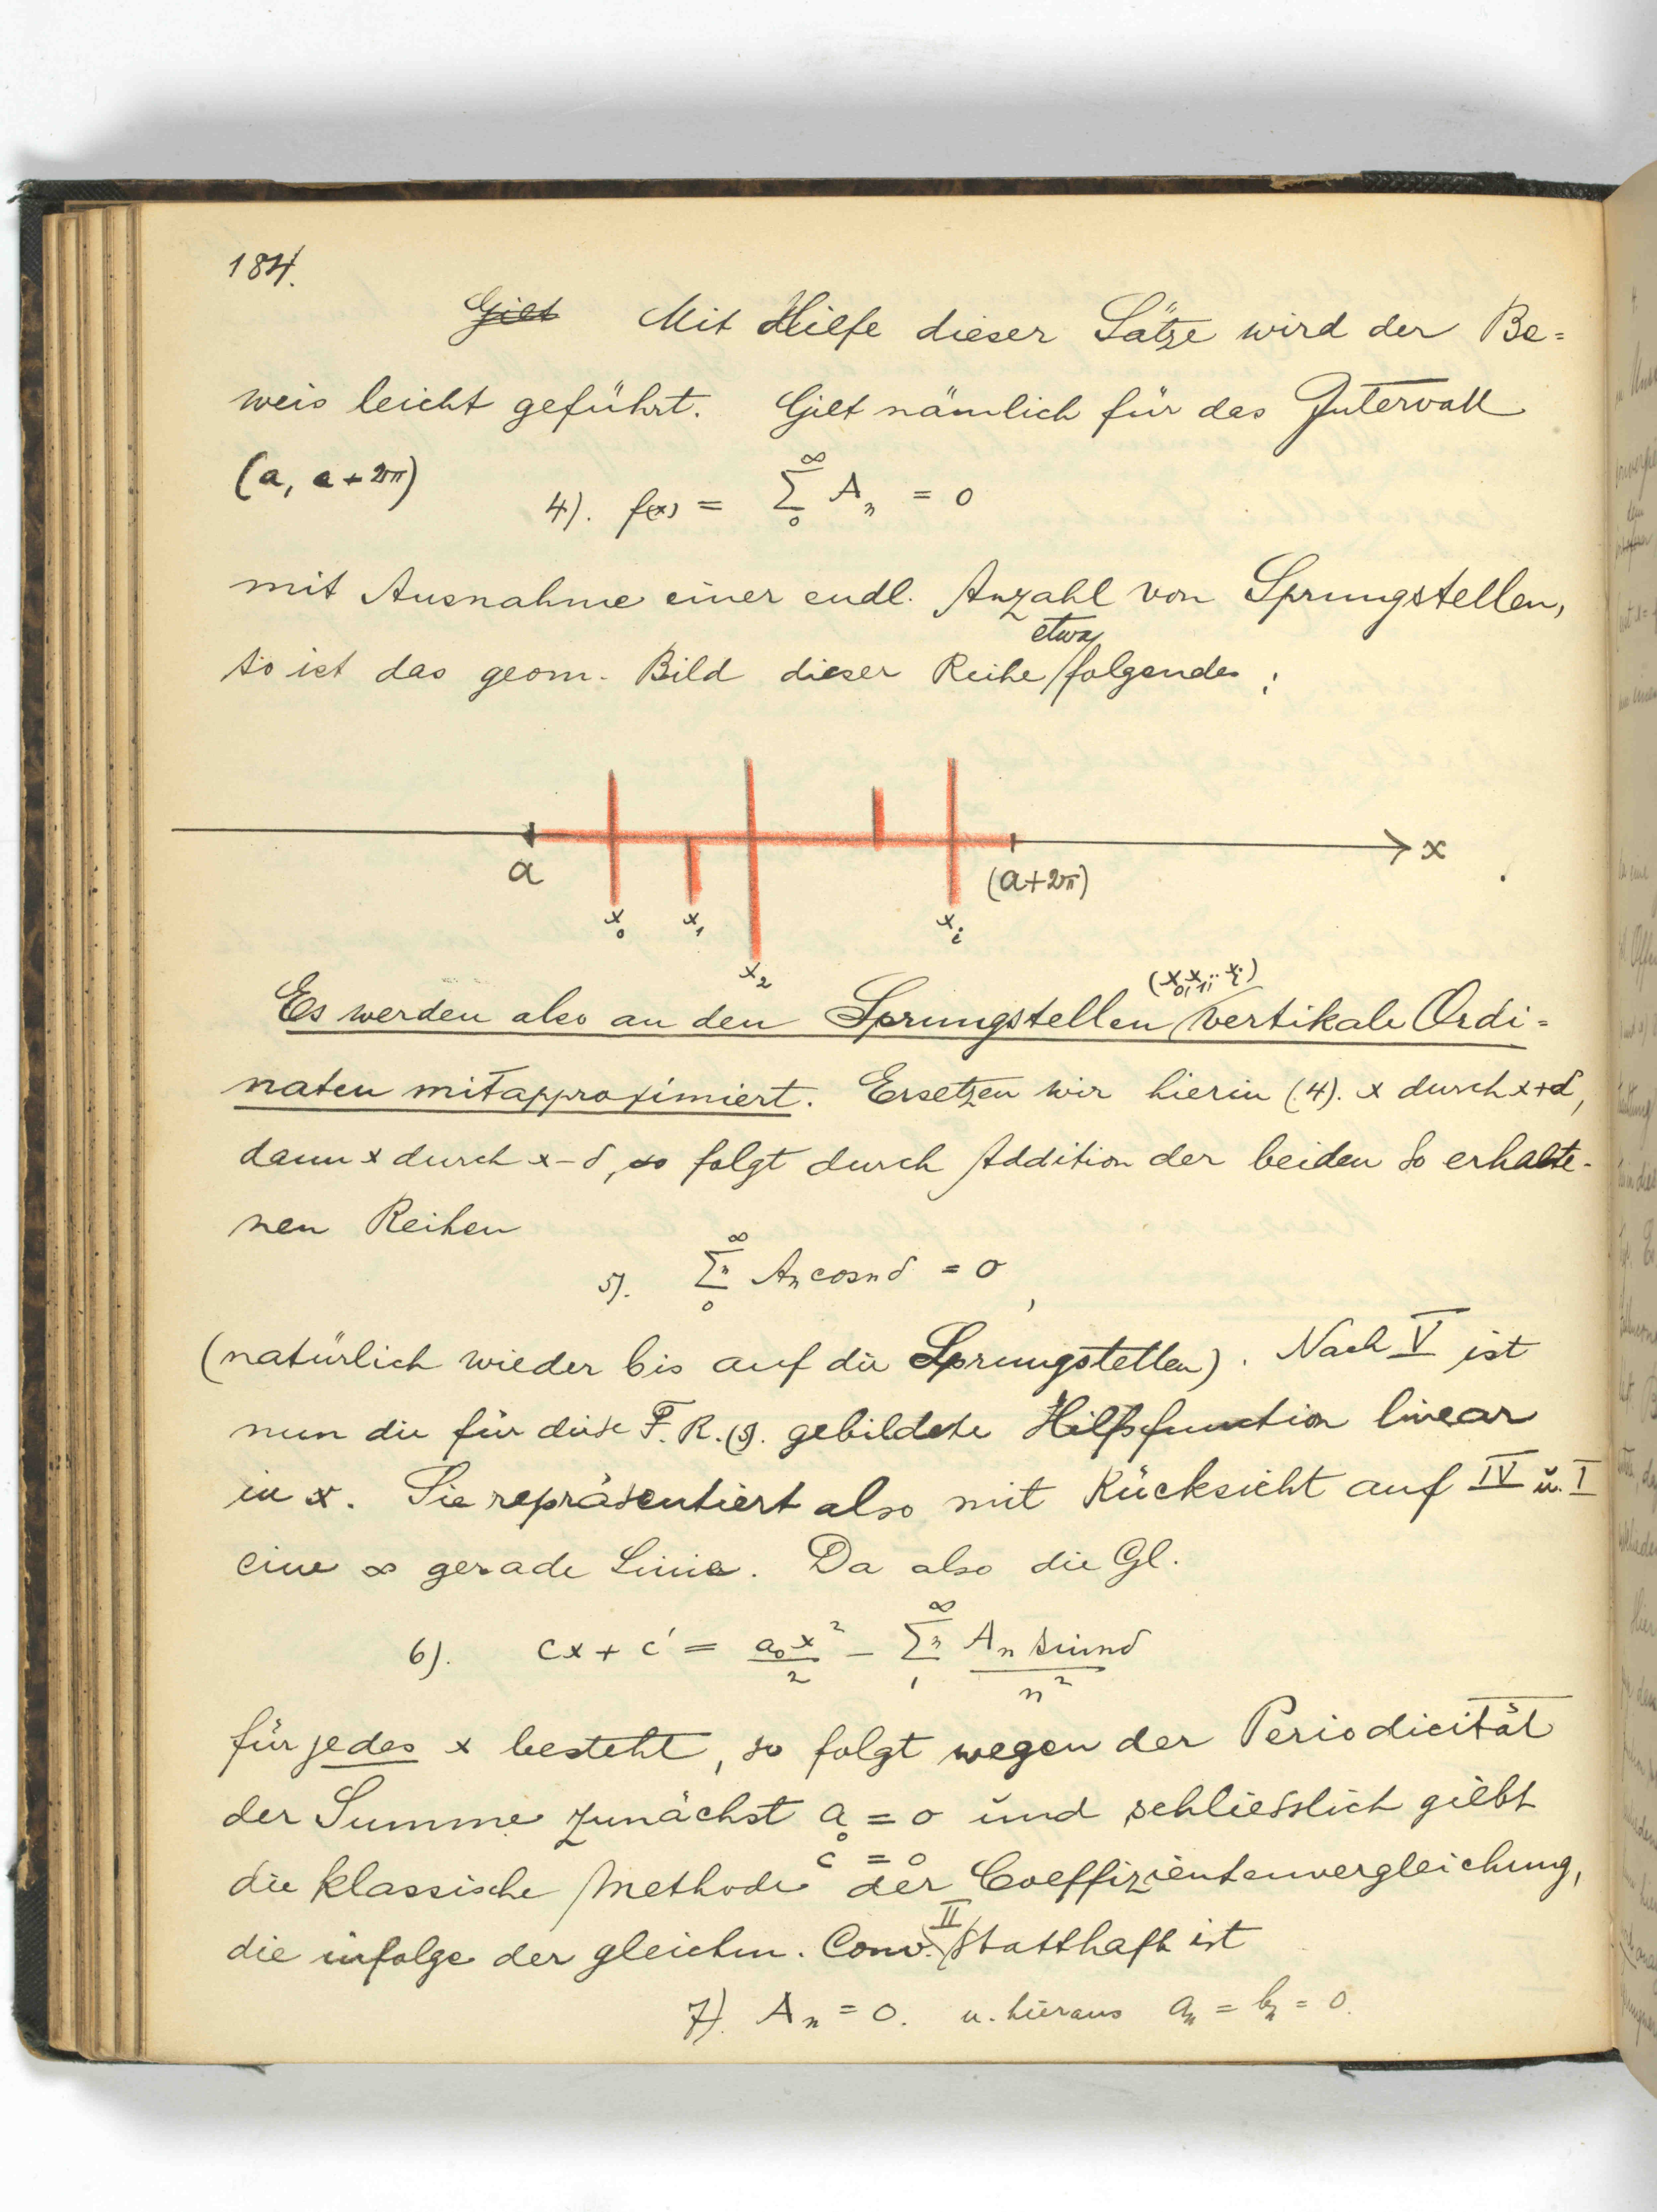 184.
Gilt Mit Hilfe dieser Sätze wird der Be=
weis leicht geführt. Gilt nämlich für das Intervall
(a, a+2π)
4). f(x) = ∑₀^∞ Aₙ = 0
mit Ausnahme einer endl. Anzahl von Sprungstellen,
etwa
so ist das geom. Bild dieser Reihe folgendes:
a (a+2π) x
x₀ x₁ x₂ xᵢ
(x₀, x₁, ·· xᵢ)
Es werden also an den Sprungstellen vertikale Ordi=
naten mitapproximiert. Ersetzen wir hierin (4). x durch x+δ,
dann x durch x-δ, so folgt durch Addition der beiden so erhalte-
nen Reihen
5). ∑₀^∞ n Aₙ cos nδ = 0,
(natürlich wieder bis auf die Sprungstellen). Nach V ist
nun die für diese F. R. (5). gebildete Hilfsfunction linear
in x. Sie repräsentiert also mit Rücksicht auf IV u. I
eine ∞ gerade Linie. Da also die Gl.
6). cx + c' = a₀x²/2 - ∑₁^∞ n Aₙ sin nδ / n²
für jedes x besteht, so folgt wegen der Periodicität
der Summe zunächst a₀ = 0 und schliesslich giebt
c = 0
die klassische Methode der Coeffizientenvergleichung,
II
die infolge der gleichm. Conv. statthaft ist
7). Aₙ = 0. u. hieraus aₙ = bₙ = 0.